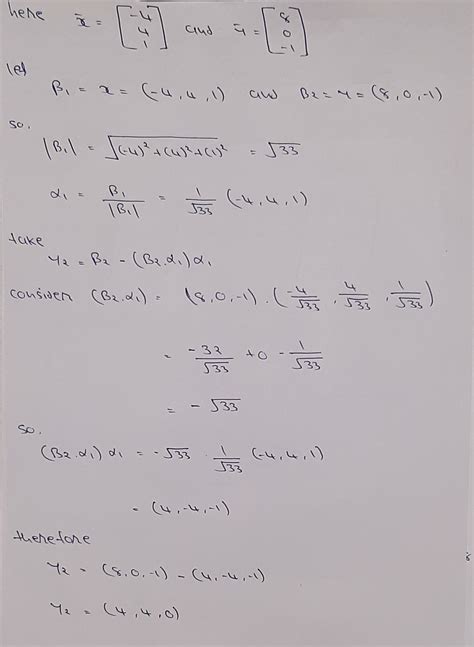 here x̄ = [-4 4 1] and ȳ = [8 0 -1]
let
β₁ = x = (-4, 4, 1) and β₂ = y = (8, 0, -1)
so,
|β₁| = √(-4)² + (4)² + (1)² = √33
α₁ = β₁/|β₁| = 1/√33 (-4, 4, 1)
take
γ₂ = β₂ - (β₂.α₁)α₁
consider (β₂.α₁) = (8, 0, -1) . (-4/√33, 4/√33, 1/√33)
= -32/√33 + 0 - 1/√33
= -√33
so.
(β₂.α₁)α₁ = -√33 . 1/√33 (-4, 4, 1)
= (4, -4, -1)
therefore
γ₂ = (8, 0, -1) - (4, -4, -1)
γ₂ = (4, 4, 0)